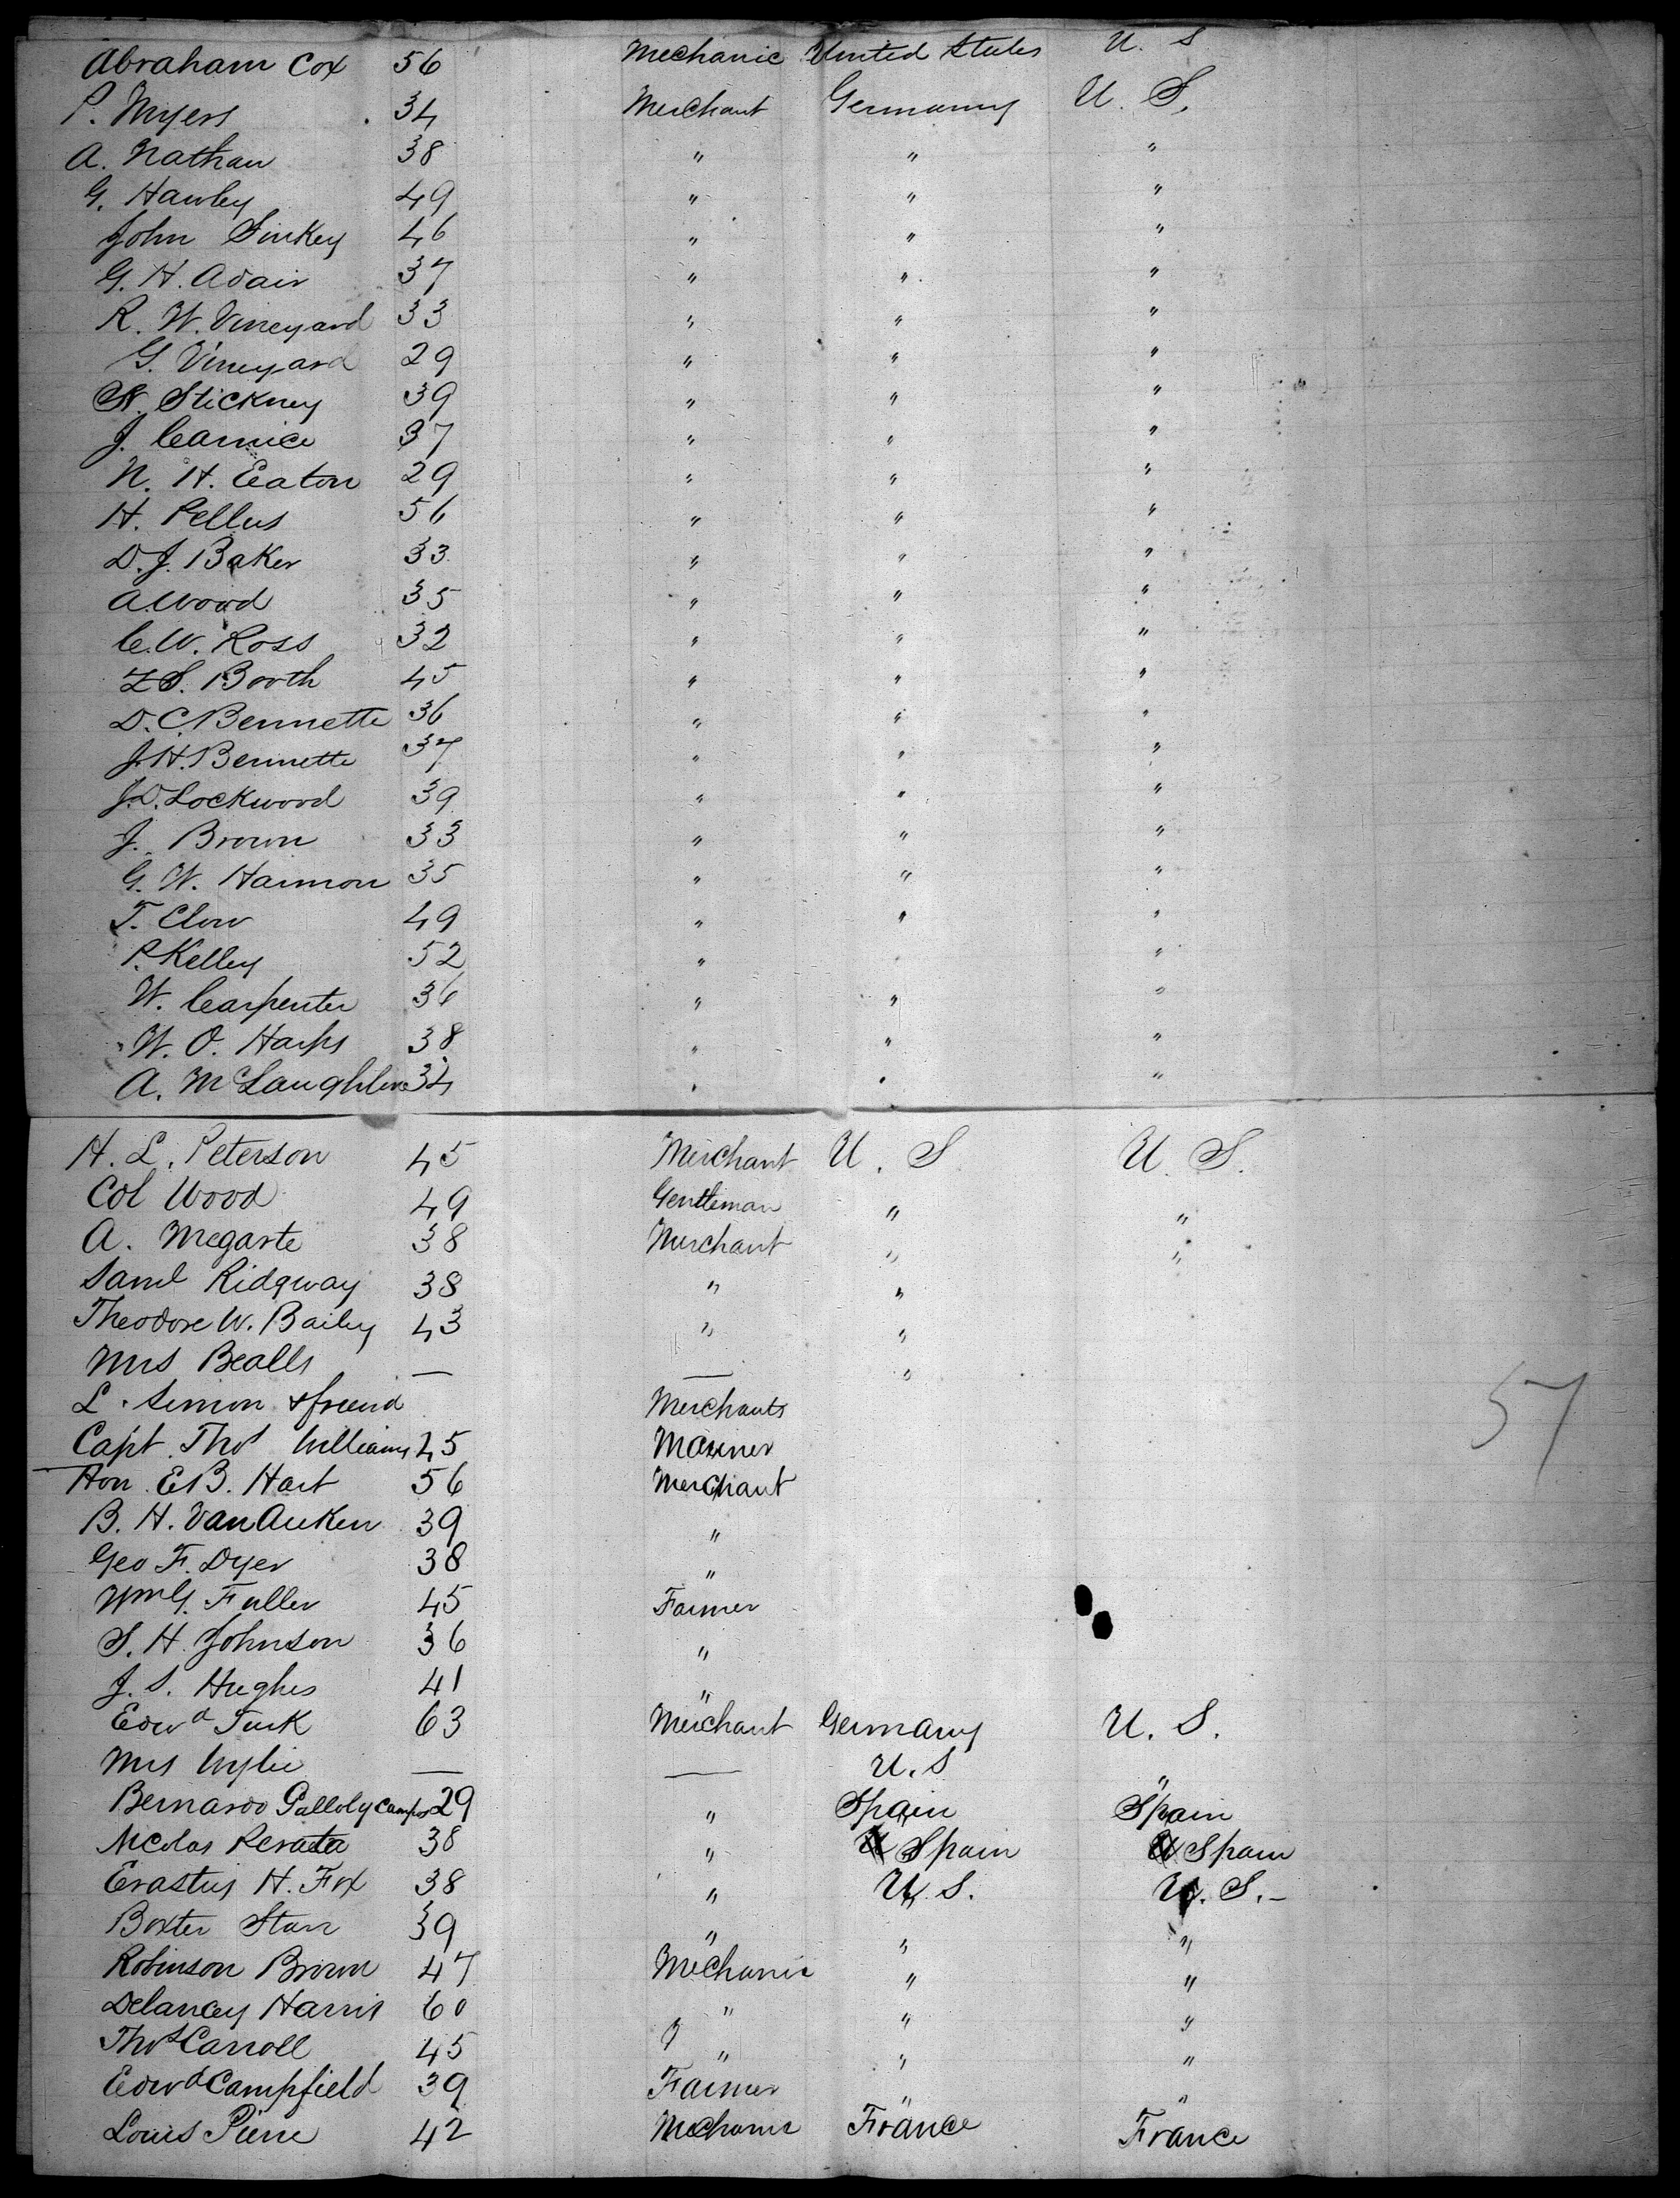 Abraham Cox 56 Mechanic United States U. S
P. Myers 34 Merchant Germany U. S.
A. Nathan 38 " " "
G. Hawley 49 " " "
John Sinkey 46 " " "
G. H. Adair 37 " " "
R. W. Vineyard 33 " " "
G. Vineyard 29 " " "
Stickney 39 " " "
J. 37 " " "
N. H. Eaton 29 " " "
H. Pellus 56 " " "
D. J. Baker 33 " " "
A. Wood 35 " " "
C. W. Ross 32 " " "
Z S. Booth 45 " " "
D. C. Bennette 36 " " "
J. H. Bennette 37 " " "
J. D. Lockwood 39 " " "
J. Brown 33 " " "
G. W. Harmon 35 " " "
T. Clow 49 " " "
P. Kelley 52 " "
W. Carpenter 36 " " "
W. O. Harps 38 " " "
A. McLaughline 34 " " "
H. L. Peterson 45 Merchant U. S U. S.
Col Wood 49 Gentleman " "
A. Megarte 38 Merchant " "
Saml Ridgway 38 " "
Theodore W. Baily 43 " "
Mrs Bealls — — "
L. Simon & friend Merchants
Capt Thos Williams 45 Mariner
57
Hon. E B. Hart 56 Merchant
B. H. Van Auken 39 "
Geo F. Dyer 38 "
Wm G. Fuller 45 Farmer
S. H. Johnson 36 "
J. S. Hughes 41 "
Edwd Turk 63 Merchant Germany U. S.
Mrs Wylie — — U. S "
Bernardo Galloly Campos 29 " Spain Spain
Nicolas 38 " Spain Spain
Erastus H. Fox 38 " U. S. U. S. —
Boxter Starr 39 " " "
Robinson Brown 47 Mechanic " "
Delancey Harris 60 " " "
Thos Carroll 45 " " "
Edwd Campfield 39 Farmer " "
Louis Pierre 42 Mechanic France France